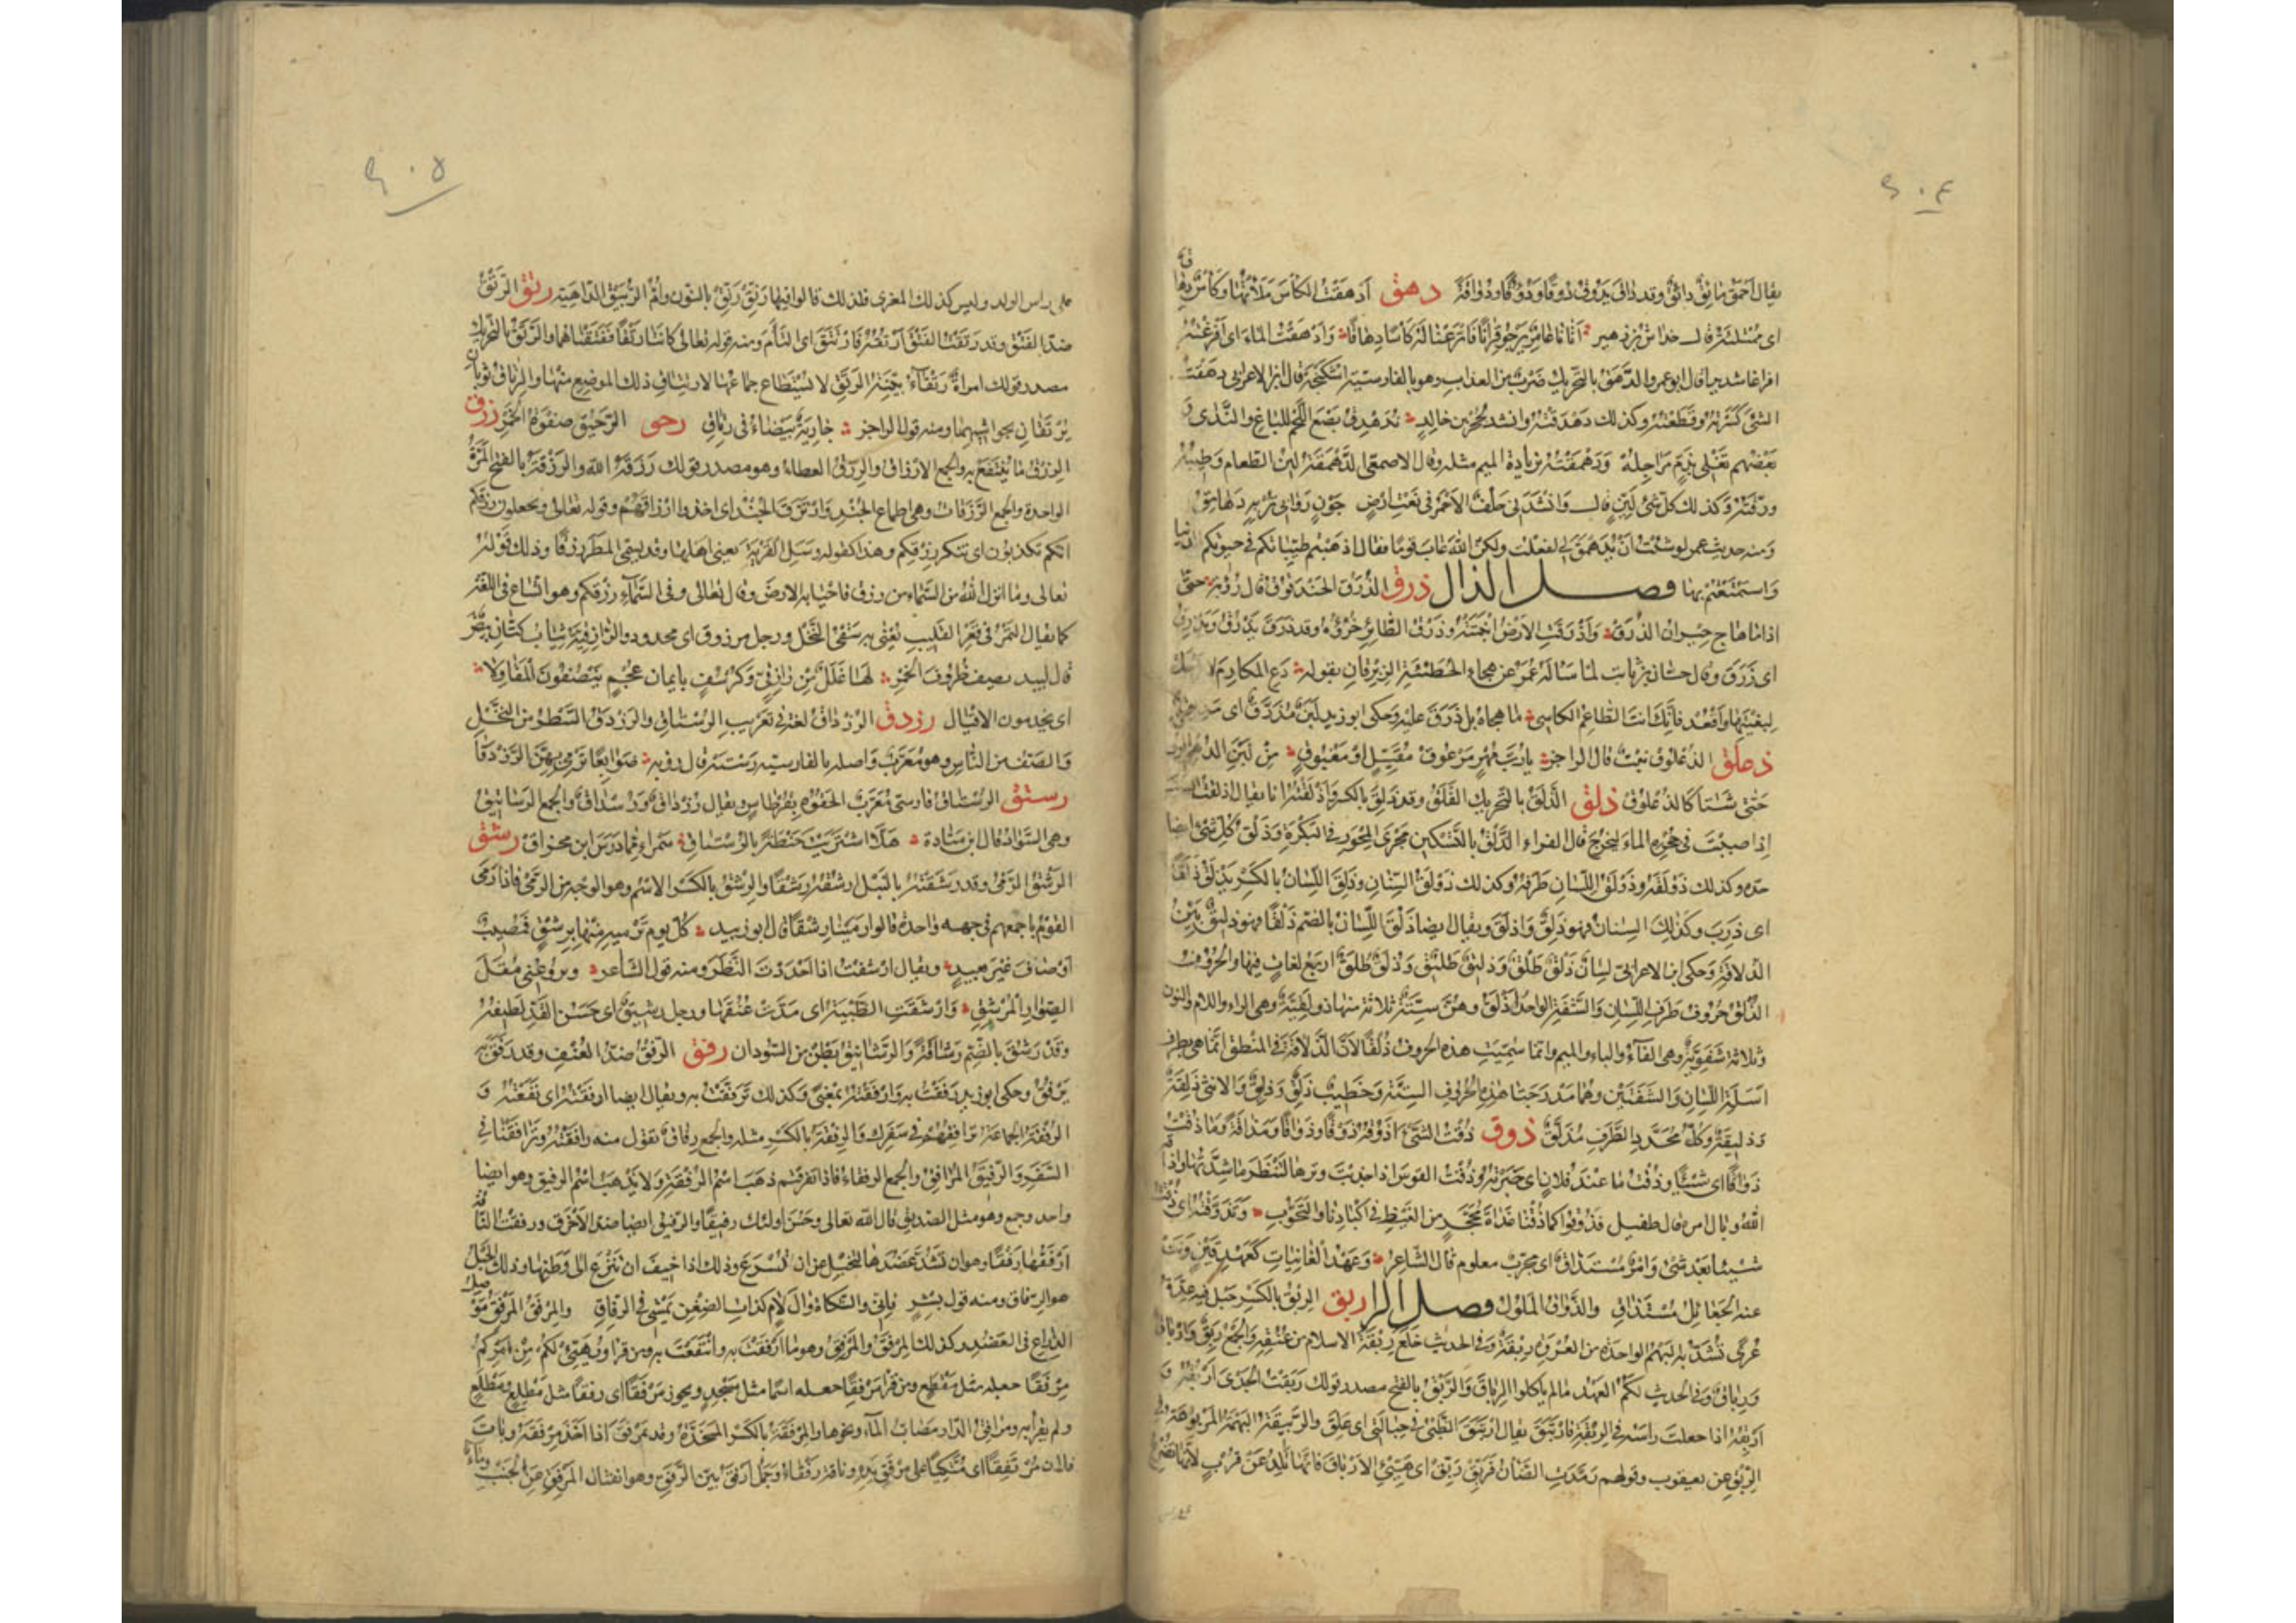 ٤٠٤
يقال احمق مائق دائق وقد داق يدوق دوقا ودؤوقا ودواقة دهق ادهقت الكأس ملأتها وكأس دهاق
اى ممتلئة قال خداش بن زهير اتانا عامر يرجو قرانا فاترعنا له كأسا دهاقا وادهقت الماء اى افرغته
افراغا شديدا قال ابو عمرو الدهق بالتحريك ضرب من العذاب وهو بالفارسية اشكنجه وقال ابن الاعرابى دهقت
الشئ كسرته وقطعته وكذلك دهدقته وانشد لحجر بن خالد ندهدق بضع اللحم للباع والندى و
بعضهم تغلى بذم مراجله ودهمقته بزيادة الميم مثله وقال الاصمعى الدهمقة لين الطعام وطيبه
ورقته وكذلك كل شئ لين قال وانشدنى خلف الاحمر فى نعت ارض جون روابى تربه دهامق
ومنه حديث عمر لو شئت ان يدهمق لى لفعلت ولكن الله عاب قوما فقال اذهبتم طيباتكم فى حيوتكم الدنيا
واستمتعتم بها فصل الذال ذرق الذرق الحندقوق قال رؤبة حتى
اذا ما هاج حيران الذرق واذرقت الارض انبتته وذرق الطائر خرؤه وقد ذرق يذرق ويذرق
اى زرق وقال حسان بن ثابت لما سأله عمر عن هجاء الحطيئة الزبرقان بقوله دع المكارم لا ترحل
لبغيتها واقعد فانك انت الطاعم الكاسى ما هجاه بل ذرق عليه وحكى ابو زيد لبن مذرق اى مذيق
ذعلق الذعلوق نبت قال الراجز يا رب مهر مزعوق مقيل او مغبوق من لبن الدهم الروق
حتى شتا كالذعلوق ذلق الذلق بالتحريك القلق وقد ذلق بالكسر واذلقته انا يقال اذلقت الضب
اذا صببت فى جحره الماء ليخرج قال الفراء الذلق بالتسكين مجرى المحور فى البكرة وذلق كل شئ ايضا
حده وكذلك ذولقه وذولق اللسان طرفه وكذلك ذولق السنان وذلق اللسان بالكسر يذلق ذلقا
اى ذرب وكذلك السنان فهو ذلق واذلق ويقال ايضا ذلق اللسان بالضم ذلقا فهو ذليق بين
الذلاقة وحكى ابن الاعرابى لسان ذلق طلق وذليق طليق وذلق طلق اربع لغات فيها والحروف
الذلق حروف طرف اللسان والشفة الواحد اذلق وهن ستة ثلاثة منها ذولقية وهى الراء واللام والنون
وثلاثة شفوية وهى الفاء والباء والميم وانما سميت هذه الحروف ذلقا لان الذلاقة فى المنطق انما هى بطرف
اسلة اللسان والشفتين وهما مدرجتا هذه الحروف الستة وخطيب ذلق وذليق والانثى ذلقة
وذليقة وكل محدد الطرف مذلق ذوق ذقت الشئ اذوقه ذوقا وذواقا ومذاقة وما ذقت
ذواقا اى شيئا وذقت ما عند فلان اى خبرته وذقت القوس اذا جذبت وترها لتنظر ما شدتها واذاقه
الله وبال امره قال طفيل فذوقوا كما ذقنا غداة محجر من الغيظ فى اكبادنا والتحوب وتذوقته اى ذقته
شيئا بعد شئ وامر مستذاق اى مجرب معلوم قال الشاعر وعهد الغانيات كعهد قين ونت
عنه الجعائل مستذاق والذواق الملول فصل الرا ربق الربق بالكسر حبل فيه عدة
عرى تشد به البهم الواحدة من العرى ربقة وفى الحديث خلع ربقة الاسلام من عنقه والجمع ربق وارباق
ورباق وفى الحديث لكم العهد ما لم ياكلوا الرباق والربق بالفتح مصدر قولك ربقت الجدى اربقه و
اربقه اذا جعلت راسه فى الربقة فارتبق يقال ارتبق الظبى فى حبالتى اى علق والربيقة البهمة المربوقة فى
الربق عن يعقوب وقولهم رمدت الضان فربق ربق اى هيئ الارباق فانها تلد عن قرب لانها تضرع
٤٠٥
على راس الولد وليس كذلك المعزى فلذلك قالوا فيها رنق رنق بالنون وام الربيق الداهية رتق الرتق
ضد الفتق وقد رتقت الفتق ارتقه فارتتق اى التأم ومنه قوله تعالى كانتا رتقا ففتقناهما والرتق بالتحريك
مصدر قولك امراة رتقاء بينة الرتق لا يستطاع جماعها لارتتاق ذلك الموضع منها والرتاق ثوبان
يرتقان بحواشيهما ومنه قول الراجز جارية بيضاء فى رتاق رحق الرحيق صفوة الخمر رزق
الرزق ما ينتفع به والجمع الارزاق والرزق العطاء وهو مصدر قولك رزقه الله والرزقة بالفتح المرة
الواحدة والجمع الرزقات وهى اطماع الجند وارتزق الجند اى اخذوا ارزاقهم وقوله تعالى وتجعلون رزقكم
انكم تكذبون اى شكر رزقكم وهذا كقوله وسئل القرية يعنى اهلها وقد يسمى المطر رزقا وذلك قوله
تعالى وما انزل الله من السماء من رزق فاحيا به الارض وقال تعالى وفى السماء رزقكم وهو اتساع فى اللغة
كما يقال التمر فى قعر القليب يعنى به سقى النخل ورجل مرزوق اى مجدود والرازقية ثياب كتان بيض
قال لبيد يصف ظروف الخمر لها غلل من رازقى وكرسف بايمان عجم ينصفون المقاولا
اى يخدمون الاقيال رزدق الرزداق لغة فى تعريب الرستاق والرزدق السطر من النخل
والصف من الناس وهو معرب واصله بالفارسية رسته قال رؤبة ضوابعا ترمى بهن الرزدقا
رستق الرستاق فارسى معرب الحقوه بقرطاس يقال رزداق ورسداق والجمع الرساتيق
وهى السواد قال ابن ميادة هلا اشتريت حنطة بالرستاق سمراء مما درس ابن مخراق رشق
الرشق الرمى وقد رشقته بالنبل ارشقه رشقا والرشق بالكسر الاسم وهو الوجه من الرمى فاذا رمى
القوم باجمعهم فى جهة واحدة قالوا رمينا رشقا قال ابو زبيد كل يوم ترميه منها برشق فمصيب
او صاف غير بعيد ويقال ارشقت اذا احددت النظر ومنه قول الشاعر ويروعنى مقل
الصوار المرشق وارشقت الظبية اى مدت عنقها ورجل رشيق اى حسن القد لطيفه
وقد رشق بالضم رشاقة والرشانيق بطن من السودان رفق الرفق ضد العنف وقد رفق به
يرفق وحكى ابو زيد رفقت به وارفقته بمعنى وكذلك ترفقت به ويقال ايضا ارفقته اى نفعته و
الرفقة الجماعة ترافقهم فى سفرك والرفقة بالكسر مثله والجمع رفاق تقول منه رافقته وترافقنا فى
السفر والرفيق المرافق والجمع الرفقاء فاذا تفرقتم ذهب اسم الرفقة ولا يذهب اسم الرفيق وهو ايضا
واحد وجمع وهو مثل الصديق قال الله تعالى وحسن اولئك رفيقا والرفيق ايضا ضد الاخرق ورفقت الناقة
ارفقها رفقا وهو ان تشد عضدها لتخبل عن ان تسرع وذلك اذا خيف ان تنزع الى وطنها وذلك الحبل
هو الرفاق ومنه قول بشر فانى والشكاة وآل لأم كذات الضغن تمشى فى الرفاق والمرفق المرفق موصل
الذراع فى العضد وكذلك المرفق والمرفق وهو ما ارتفقت به وانتفعت به ومن قرأ ويهيئ لكم من امركم
مرفقا جعله مثل مقطع ومن قرأ مرفقا جعله اسما مثل مسجد ويجوز مرفقا اى رفقا مثل مطلع ومطلع
ولم يقرأ به ومرافق الدار مصاب الماء ونحوها والمرفقة بالكسر المخدة وقد تمرفق اذا اخذ مرفقة وبات
فلان مرتفقا اى متكئا على مرفق يده وناقة رفقاء وجمل ارفق بين الرفق وهو انفتال المرفق عن الجنب وماء